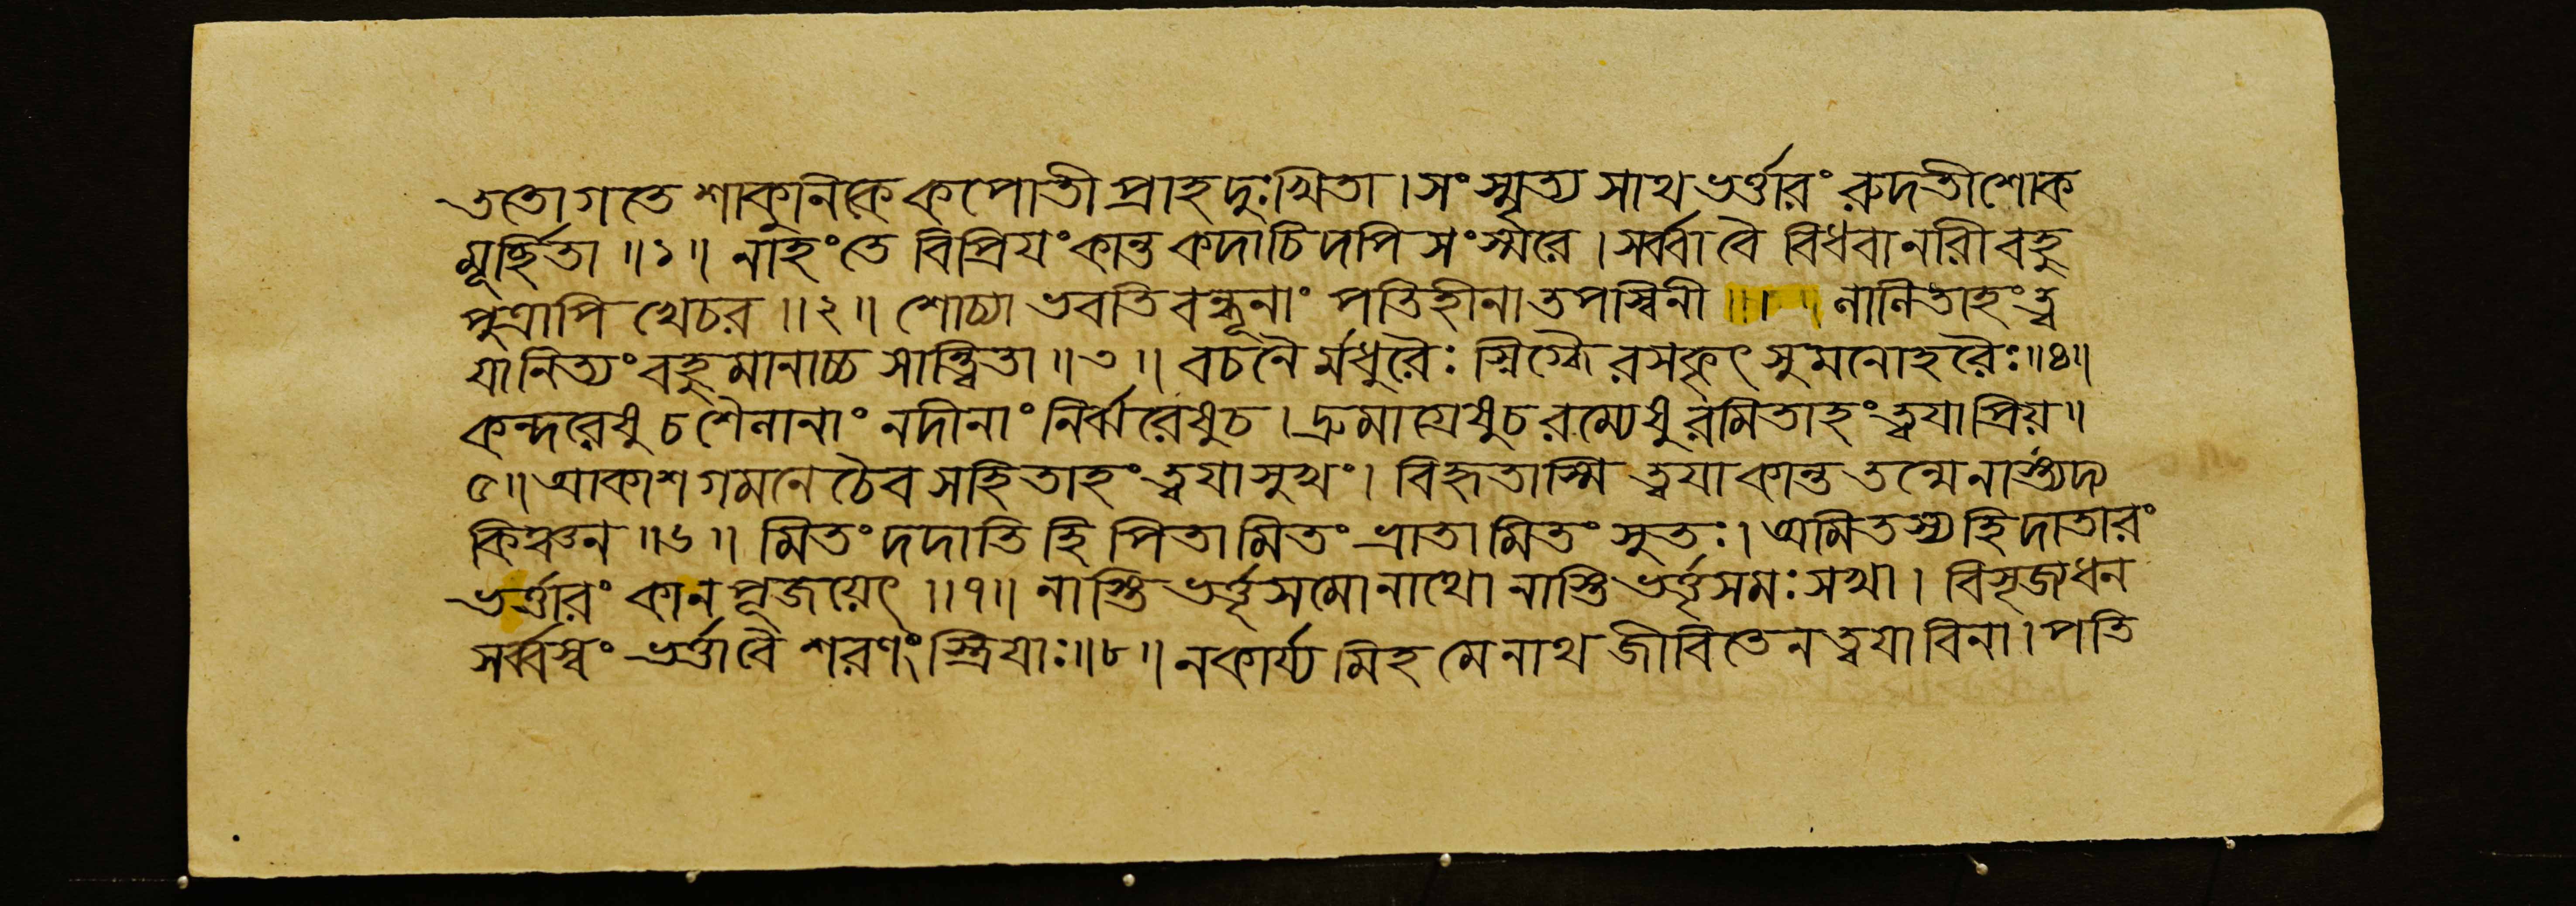 ততোগতে শাকুনিকে কপোতী প্রাহ দুঃখিতা । সংস্মৃত্য সাথ ভর্ত্তারং রুদতী শোক
মূর্চ্ছিতা ॥১॥ নাহং তে বিপ্রিয়ং কান্ত কদাচিদপি সংস্মরে । সর্ব্বা বৈ বিধবা নারী বহু
পুত্রাপি খেচর ॥২॥ শোচ্যা ভবতি বন্ধূনাং পতিহীনা তপস্বিনী ॥ ॥ লালিতাহং ত্ব
যা নিত্যং বহুমানাচ্চ সান্ত্বিতা ॥৩॥ বচনৈর্মধুরৈঃ স্নিগ্ধৈরসকৃৎ সুমনোহরৈঃ ॥৪॥
কন্দরেষু চ শৈলানাং নদীনাং নির্ঝরেষু চ । দ্রুমাগ্রেষু চ রম্যেষু রমিতাহং ত্বযা প্রিয় ॥
৫॥ আকাশগমনে চৈব সহিতাহং ত্বযা সুখং । বিহৃতাস্মি ত্বযা কান্ত তন্মে নাস্ত্যদ্য
কিঞ্চন ॥৬॥ মিতং দদাতি হি পিতা মিতং ভ্রাতা মিতং সুতঃ । অমিতস্য হি দাতারং
ভর্ত্তারং কা ন পূজয়েৎ ॥৭॥ নাস্তি ভর্ত্তৃসমো নাথো নাস্তি ভর্ত্তৃসমঃ সখা । বিসৃজ্য ধন
সর্ব্বস্বং ভর্ত্তা বৈ শরণং স্ত্রিযাঃ ॥৮॥ ন কার্য্যমিহ মে নাথ জীবিতেন ত্বযা বিনা । পতি